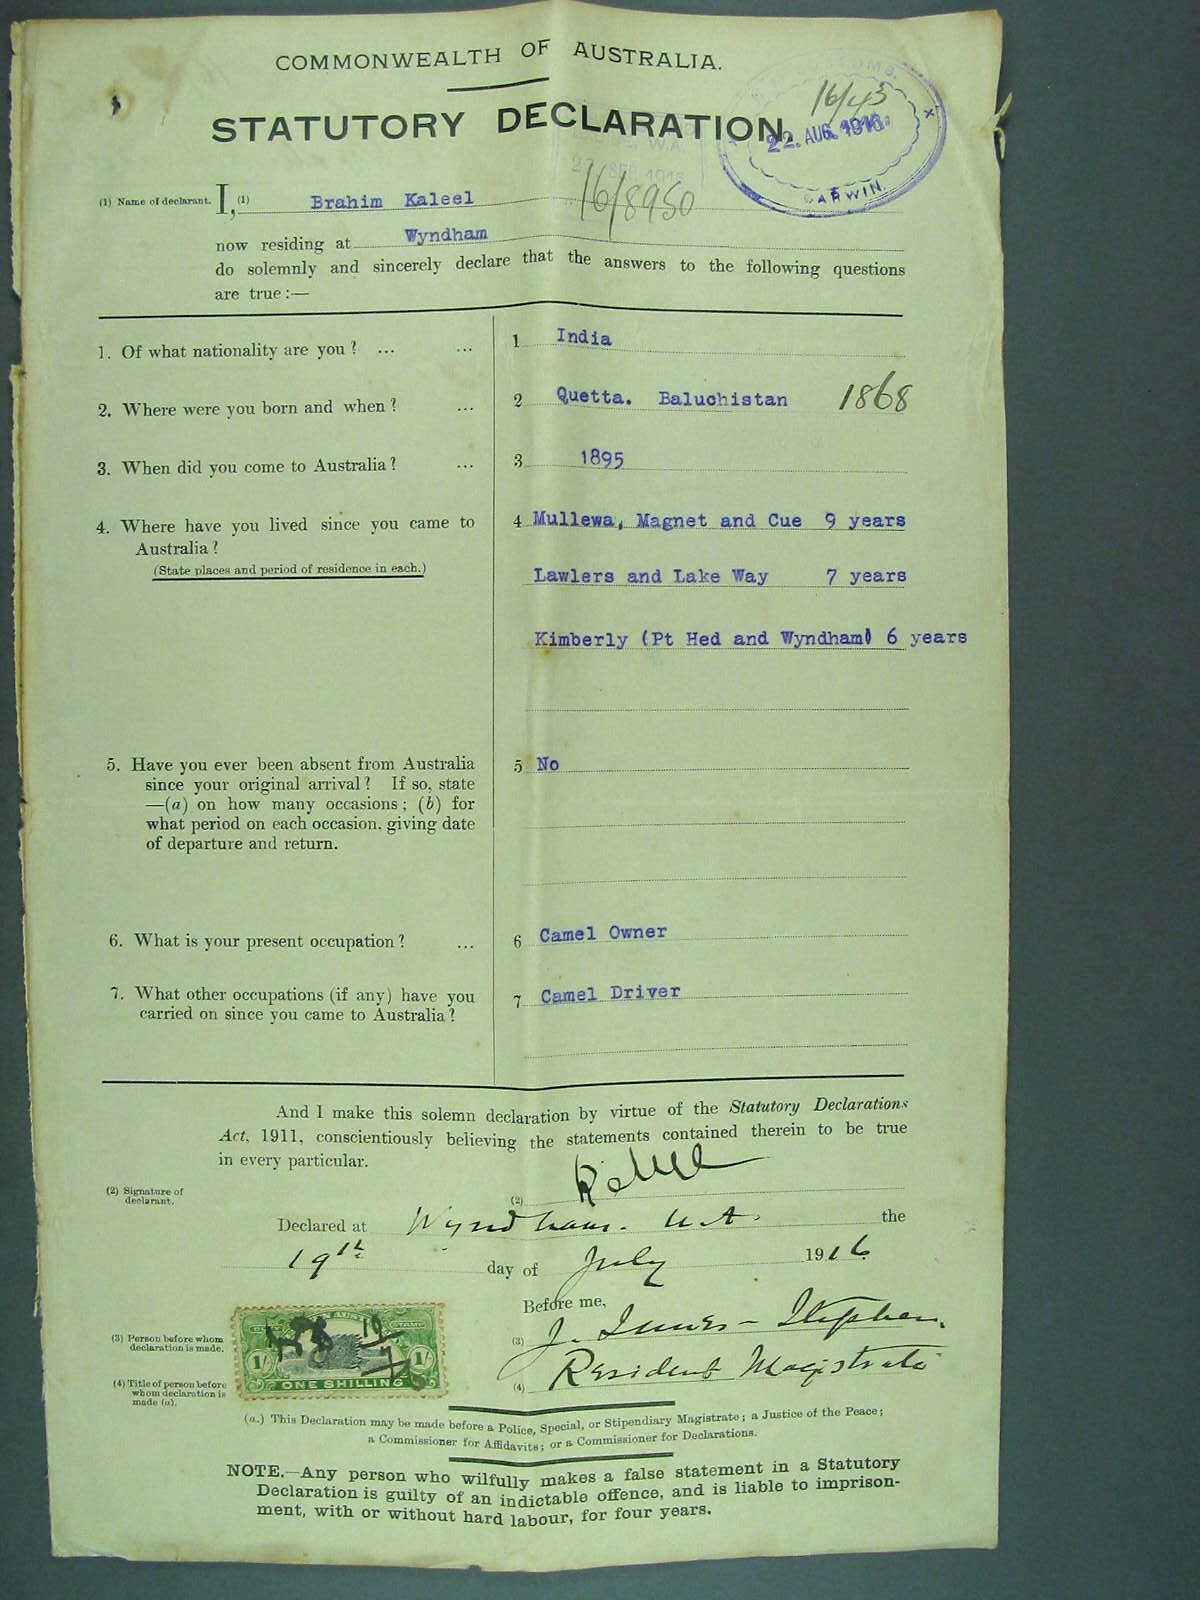 COMMONWEALTH OF AUSTRALIA.
STATUTORY DECLARATION.
CUSTOMS.
16/43
22. AUG. 1916
DARWIN.
W.A.
27 SEP 1916
16/8950
(1) Name of declarant. I, (1) Brahim Kaleel
now residing at Wyndham
do solemnly and sincerely declare that the answers to the following questions
are true :—
1. Of what nationality are you ? ... ... 1 India
2. Where were you born and when ? ... 2 Quetta. Baluchistan 1868
3. When did you come to Australia ? ... 3 1895
4. Where have you lived since you came to
Australia ?
(State places and period of residence in each.)
4 Mullewa, Magnet and Cue 9 years
Lawlers and Lake Way 7 years
Kimberly (Pt Hed and Wyndham) 6 years
5. Have you ever been absent from Australia
since your original arrival ? If so, state
—(a) on how many occasions ; (b) for
what period on each occasion, giving date
of departure and return.
5 No
6. What is your present occupation ? ... 6 Camel Owner
7. What other occupations (if any) have you
carried on since you came to Australia ?
7 Camel Driver
And I make this solemn declaration by virtue of the Statutory Declarations
Act, 1911, conscientiously believing the statements contained therein to be true
in every particular.
(2) Signature of
declarant.
(2)
Declared at Wyndham. W.A. the
19th day of July 1916
Before me,
(3) Person before whom
declaration is made.
(3) J. Innes - Stephen.
(4) Title of person before
whom declaration is
made (a).
(4) Resident Magistrate
STAMP
1/- 1/-
ONE SHILLING
19/7
(a.) This Declaration may be made before a Police, Special, or Stipendiary Magistrate ; a Justice of the Peace ;
a Commissioner for Affidavits ; or a Commissioner for Declarations.
NOTE.—Any person who wilfully makes a false statement in a Statutory
Declaration is guilty of an indictable offence, and is liable to imprison-
ment, with or without hard labour, for four years.